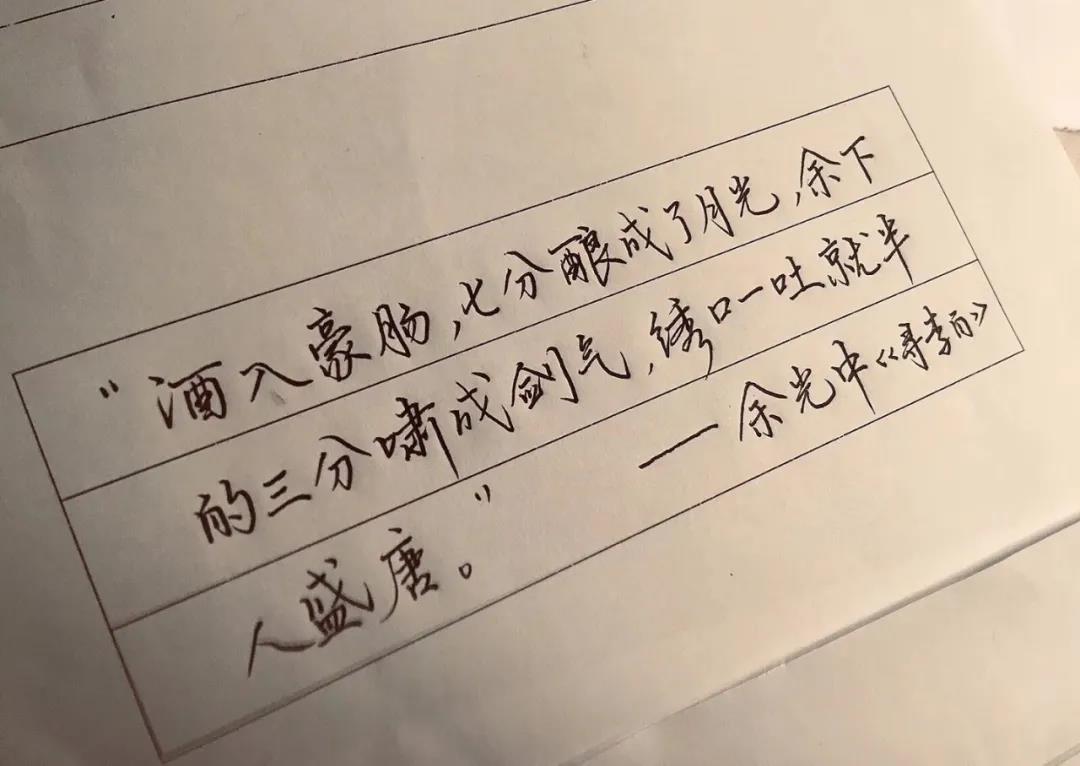 “酒入豪肠,七分酿成了月光,余下
的三分啸成剑气,绣口一吐就半
人盛唐。”
——余光中《寻李白》